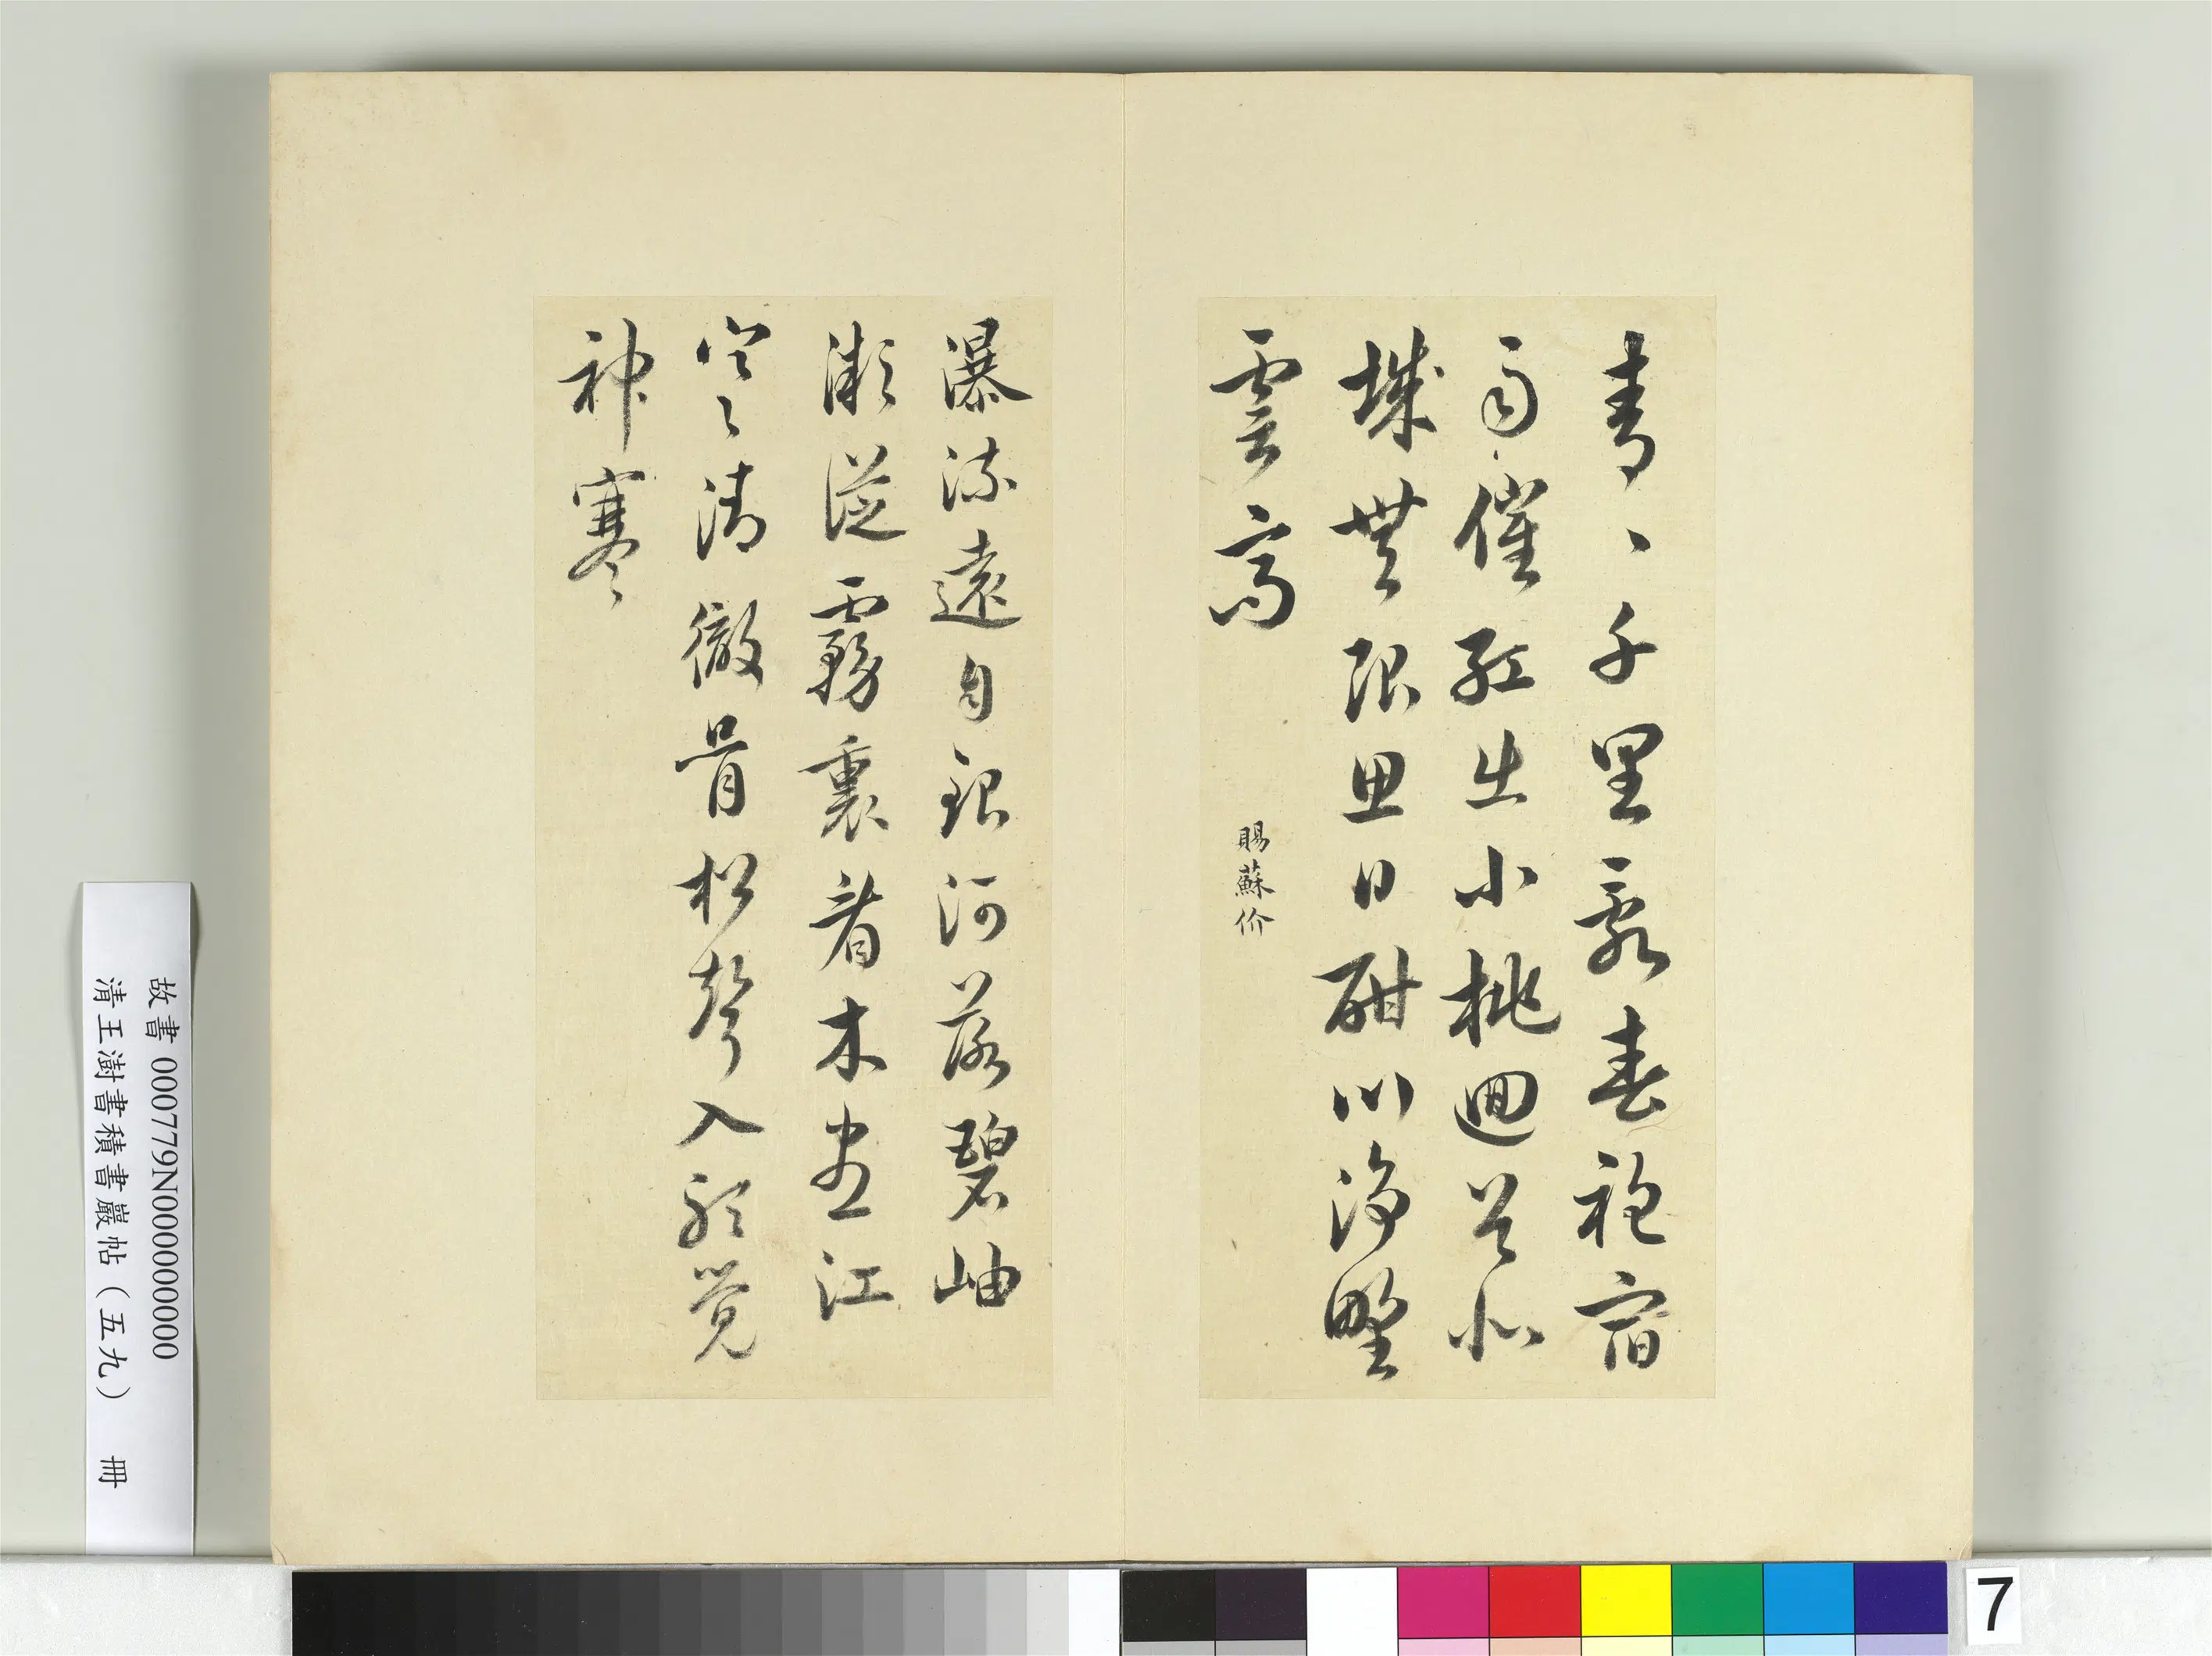 青〻千里亂春袍宿
雨催紅出小桃迴首北
城無限思日酣川淨野
雲高
賜蘇价
瀑流遠自銀河落碧岫
漸從霧裏看木盡江
空清徹骨松聲入聽覺
神寒
故書 000779N000000000
清王澍書積書巖帖（五九） 冊
7